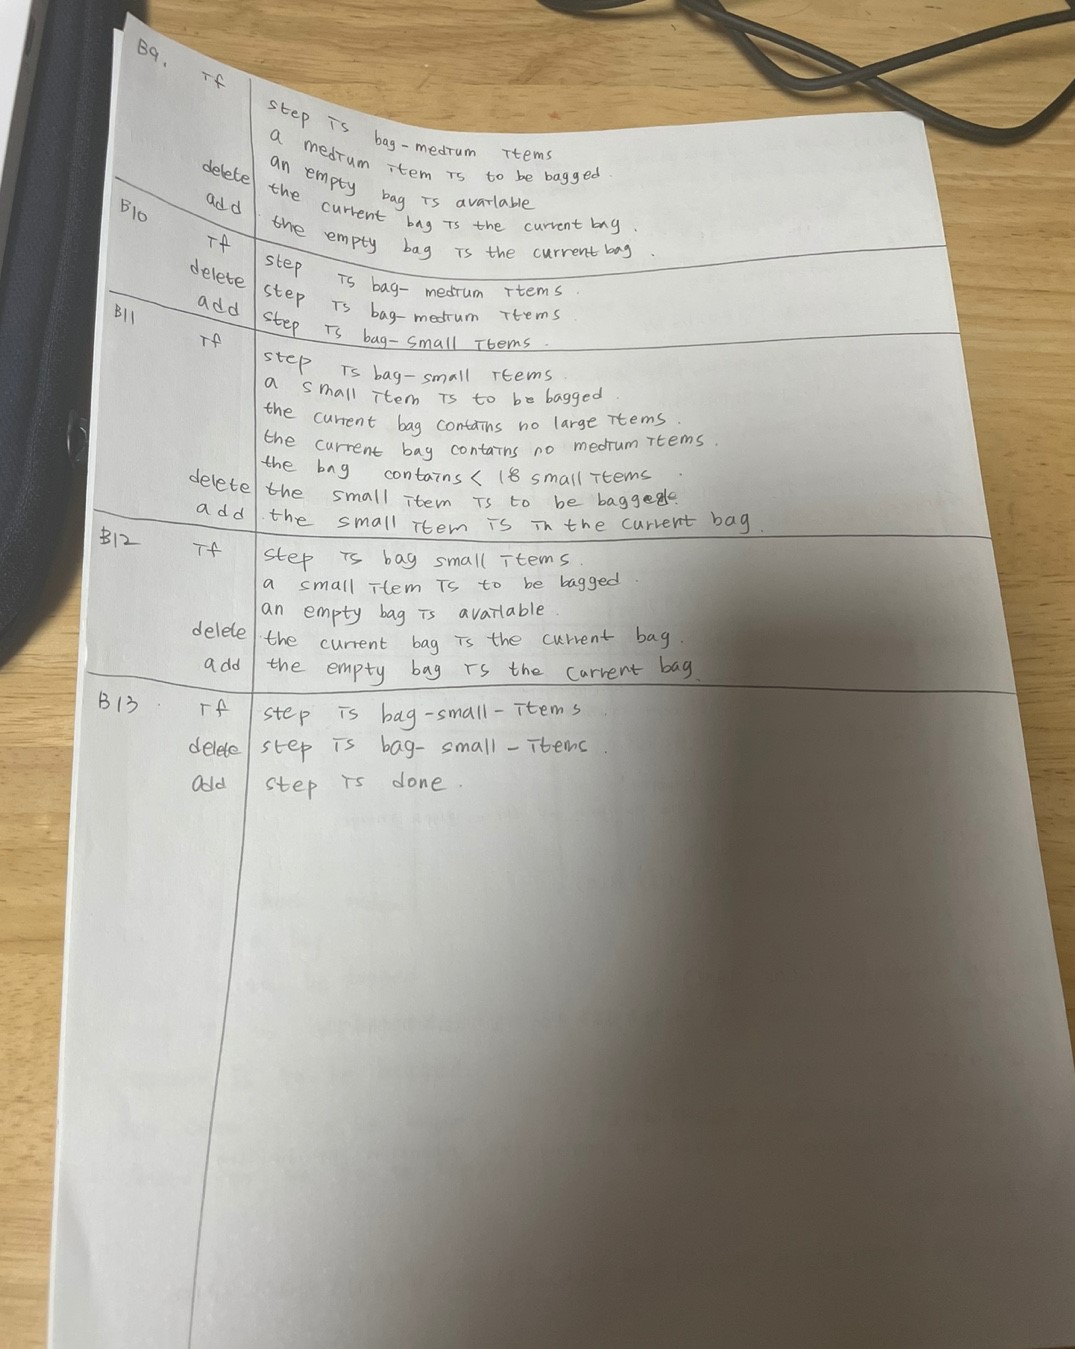 B9. if step is bag-medium items
a medium item is to be bagged.
an empty bag is available
delete the current bag is the current bag.
add the empty bag is the current bag.
B10 if step is bag-medium items.
delete step is bag-medium items
add step is bag-small items.
B11 if step is bag-small items.
a small item is to be bagged.
the current bag contains no large items.
the current bag contains no medium items.
the bag contains < 18 small items.
delete the small item is to be bagged.
add the small item is in the current bag.
B12 if step is bag small items.
a small item is to be bagged.
an empty bag is available.
delete the current bag is the current bag.
add the empty bag is the current bag.
B13. if step is bag-small-items.
delete step is bag-small-items.
add step is done.